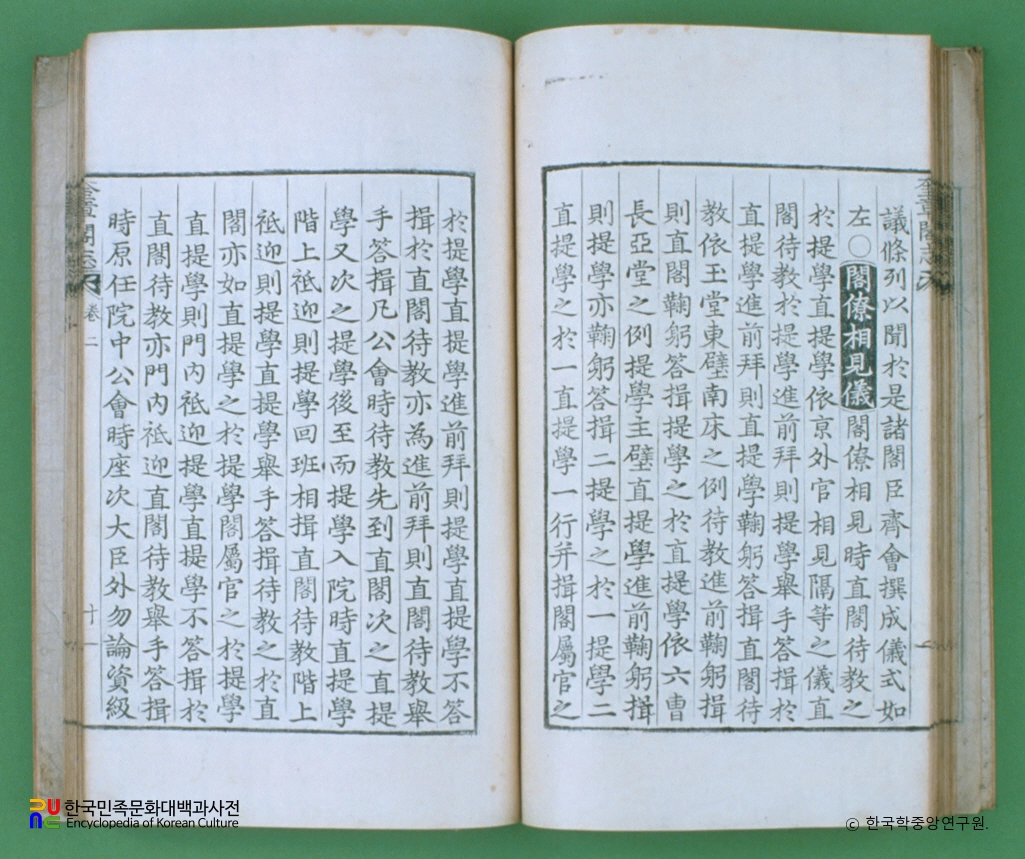 議條列以聞於是諸閣臣齊會撰成儀式如
左○閣僚相見儀閣僚相見時直閣待敎之
於提學直提學依京外官相見隔等之儀直
閣待敎於提學進前拜則提學擧手答揖於
直提學進前拜則直提學鞠躬答揖直閣待
敎依玉堂東壁南床之例待敎進前鞠躬揖
則直閣鞠躬答揖提學之於直提學依六曹
長亞堂之例提學主壁直提學進前鞠躬揖
則提學亦鞠躬答揖二提學之於一提學二
直提學之於一直提學一行并揖閣屬官之
於提學直提學進前拜則提學直提學不答
揖於直閣待敎亦為進前拜則直閣待敎擧
手答揖凡公會時待敎先到直閣次之直提
學又次之提學後至而提學入院時直提學
階上祗迎則提學回班相揖直閣待敎階上
祗迎則提學直提學擧手答揖待敎之於直
閣亦如直提學之於提學閣屬官之於提學
直提學則門內祗迎提學直提學不答揖於
直閣待敎亦門內祗迎直閣待敎擧手答揖
時原任院中公會時座次大臣外勿論資級
奎章閣志
卷二
十一
한국민족문화대백과사전
Encyclopedia of Korean Culture
© 한국학중앙연구원.